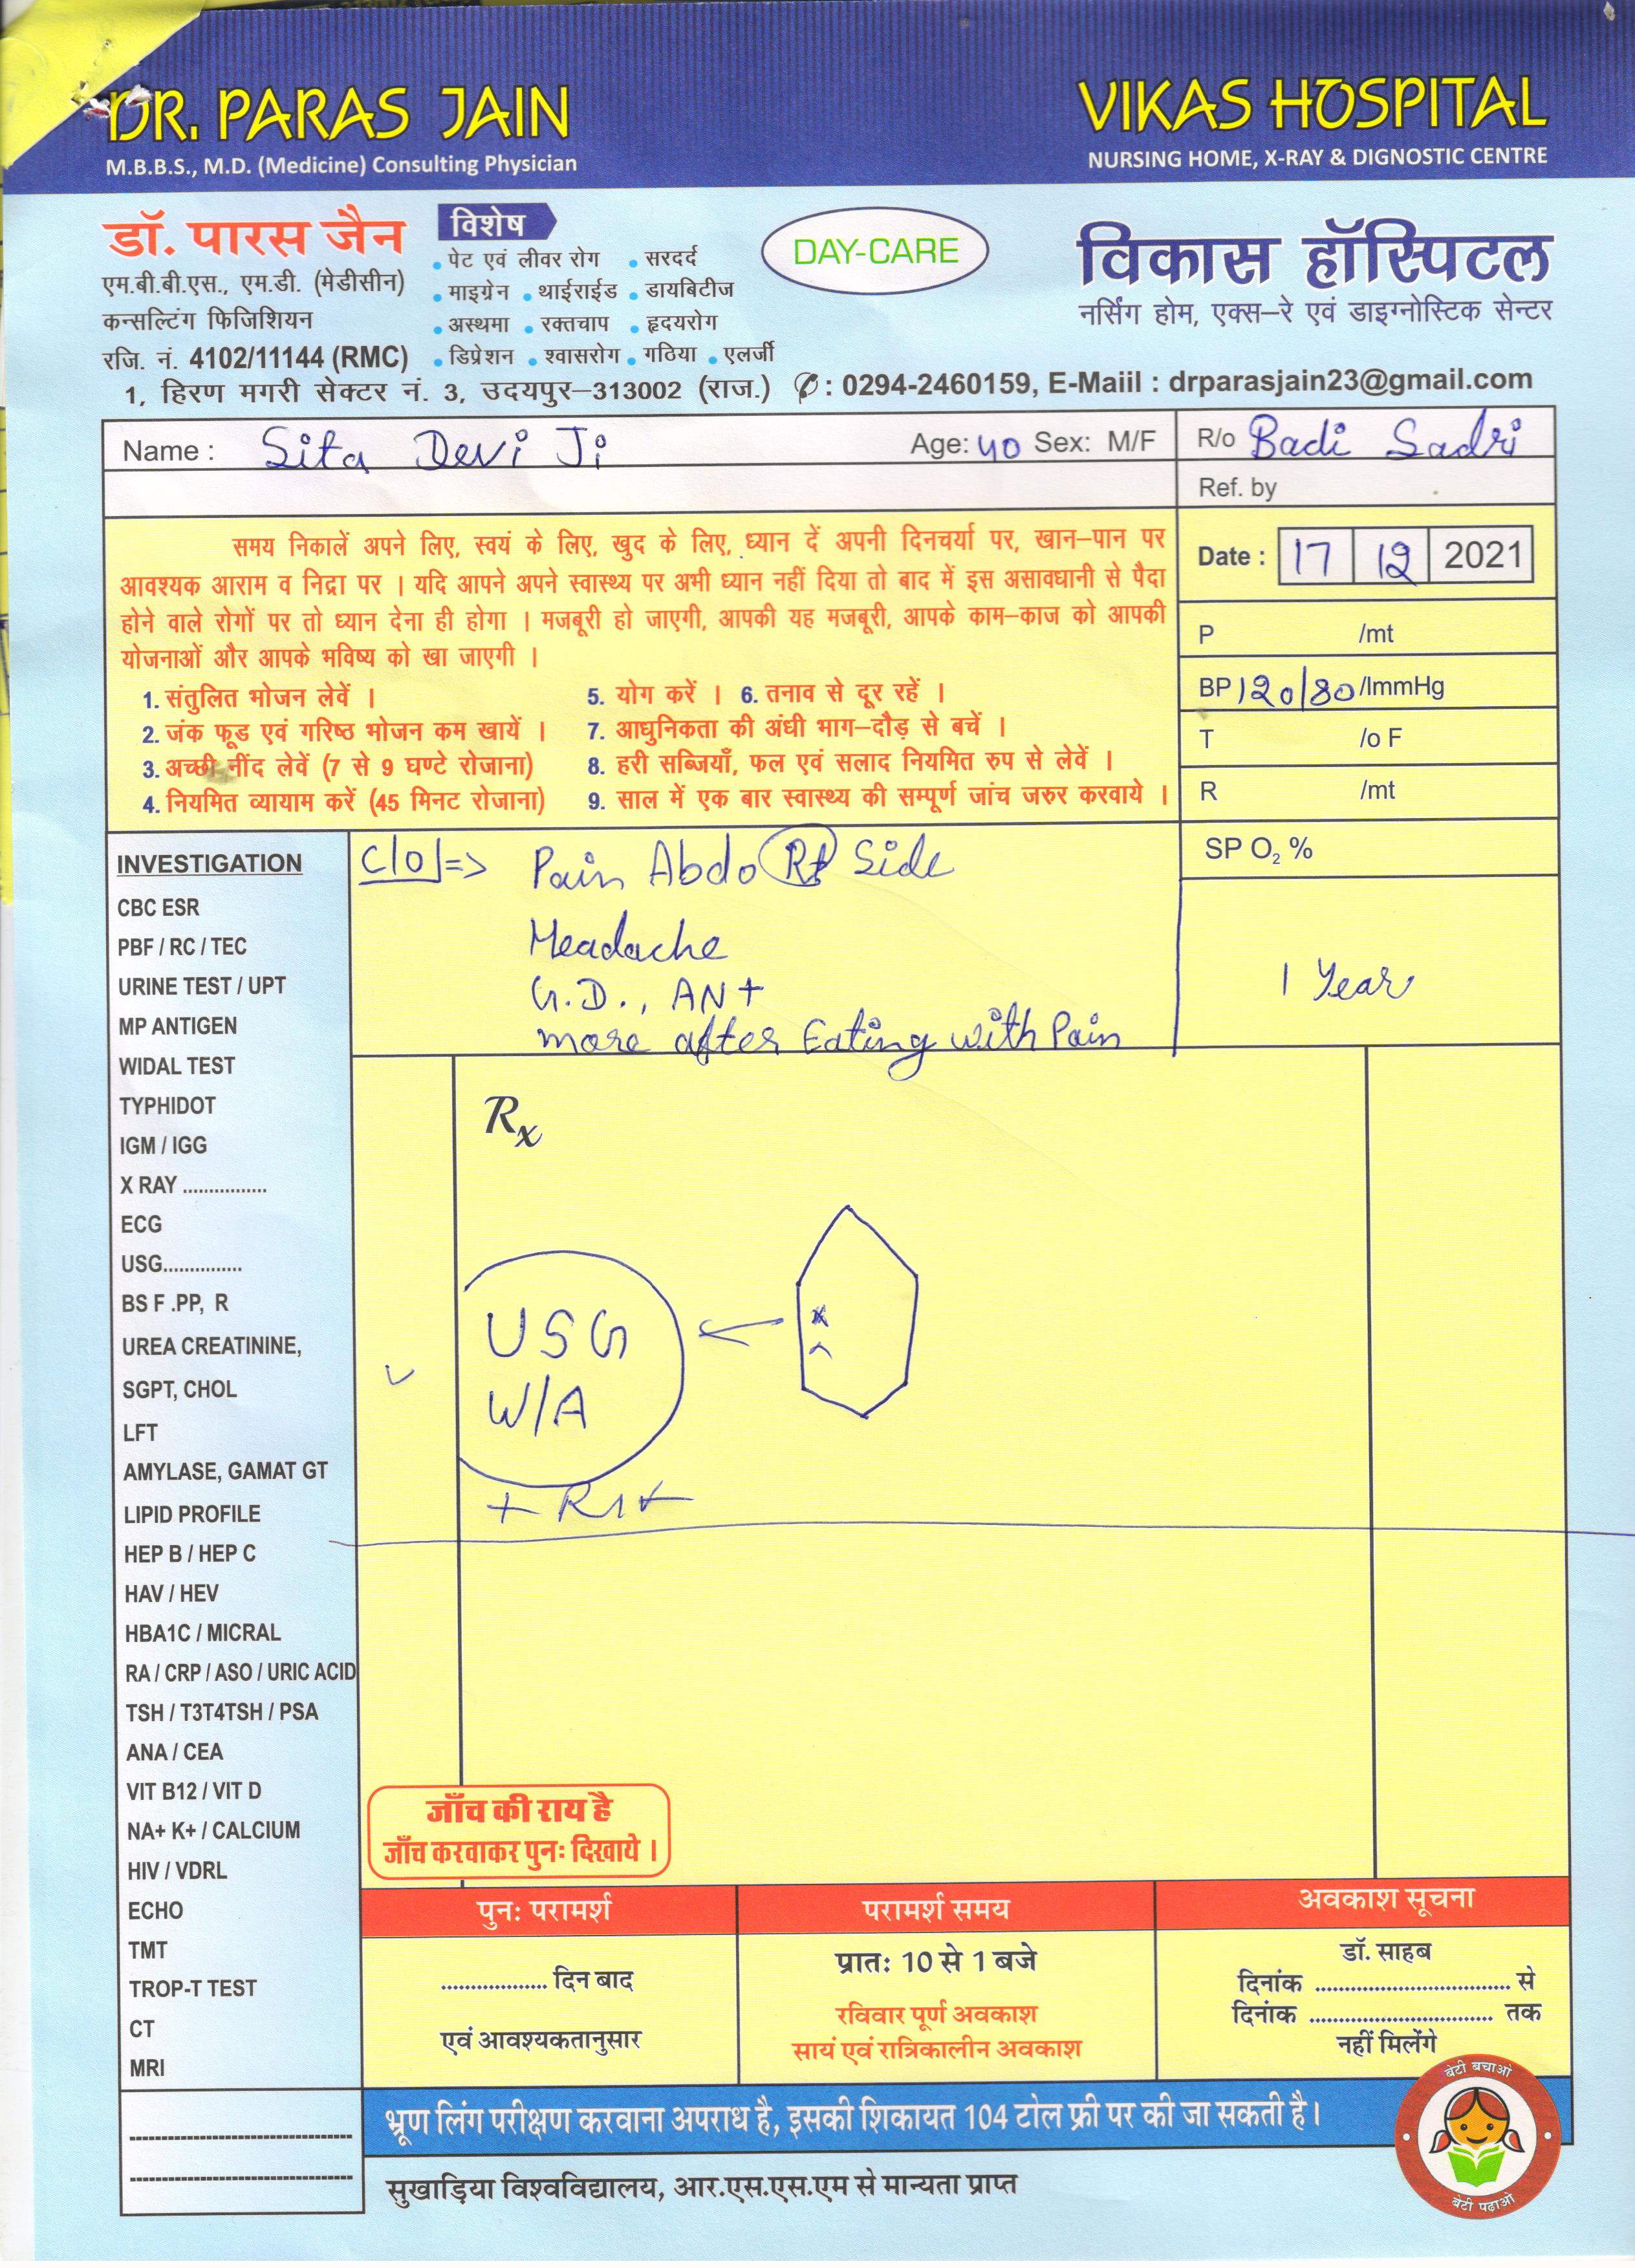 DR. PARAS JAIN
M.B.B.S., M.D. (Medicine) Consulting Physician
VIKAS HOSPITAL
NURSING HOME, X-RAY & DIGNOSTIC CENTRE
डॉ. पारस जैन
एम.बी.बी.एस., एम.डी. (मेडीसीन)
कन्सल्टिंग फिजिशियन
रजि. नं. 4102/11144 (RMC)
विशेष
• पेट एवं लीवर रोग • सरदर्द
• माइग्रेन • थाईराईड • डायबिटीज
• अस्थमा • रक्तचाप • हृदयरोग
• डिप्रेशन • श्वासरोग • गठिया • एलर्जी
DAY-CARE
विकास हॉस्पिटल
नर्सिंग होम, एक्स–रे एवं डाइग्नोस्टिक सेन्टर
1, हिरण मगरी सेक्टर नं. 3, उदयपुर–313002 (राज.) ✆: 0294-2460159, E-Maiil : drparasjain23@gmail.com
Name : Sita Devi Ji Age: 40 Sex: M/F R/o Badi Sadri
Ref. by
समय निकालें अपने लिए, स्वयं के लिए, खुद के लिए, ध्यान दें अपनी दिनचर्या पर, खान–पान पर
आवश्यक आराम व निद्रा पर । यदि आपने अपने स्वास्थ्य पर अभी ध्यान नहीं दिया तो बाद में इस असावधानी से पैदा
होने वाले रोगों पर तो ध्यान देना ही होगा । मजबूरी हो जाएगी, आपकी यह मजबूरी, आपके काम–काज को आपकी
योजनाओं और आपके भविष्य को खा जाएगी ।
1. संतुलित भोजन लेवें ।
2. जंक फूड एवं गरिष्ठ भोजन कम खायें ।
3. अच्छी नींद लेवें (7 से 9 घण्टे रोजाना)
4. नियमित व्यायाम करें (45 मिनट रोजाना)
5. योग करें । 6. तनाव से दूर रहें ।
7. आधुनिकता की अंधी भाग–दौड़ से बचें ।
8. हरी सब्जियाँ, फल एवं सलाद नियमित रुप से लेवें ।
9. साल में एक बार स्वास्थ्य की सम्पूर्ण जांच जरुर करवाये ।
Date : 17 12 2021
P /mt
BP 120/80 /ImmHg
T /o F
R /mt
SP O₂ %
1 Year
C/O => Pain Abdo Rt Side
Headache
G.D., AN +
more after Eating with Pain
INVESTIGATION
CBC ESR
PBF / RC / TEC
URINE TEST / UPT
MP ANTIGEN
WIDAL TEST
TYPHIDOT
IGM / IGG
X RAY ................
ECG
USG...............
BS F .PP, R
UREA CREATININE,
SGPT, CHOL
LFT
AMYLASE, GAMAT GT
LIPID PROFILE
HEP B / HEP C
HAV / HEV
HBA1C / MICRAL
RA / CRP / ASO / URIC ACID
TSH / T3T4TSH / PSA
ANA / CEA
VIT B12 / VIT D
NA+ K+ / CALCIUM
HIV / VDRL
ECHO
TMT
TROP-T TEST
CT
MRI
Rx
USG
W/A
जाँच की राय है
जाँच करवाकर पुनः दिखाये ।
पुनः परामर्श
.................. दिन बाद
एवं आवश्यकतानुसार
परामर्श समय
प्रातः 10 से 1 बजे
रविवार पूर्ण अवकाश
सायं एवं रात्रिकालीन अवकाश
अवकाश सूचना
डॉ. साहब
दिनांक ................................. से
दिनांक ............................... तक
नहीं मिलेंगे
भ्रूण लिंग परीक्षण करवाना अपराध है, इसकी शिकायत 104 टोल फ्री पर की जा सकती है।
सुखाड़िया विश्वविद्यालय, आर.एस.एस.एम से मान्यता प्राप्त
बेटी बचाओ
बेटी पढ़ाओ